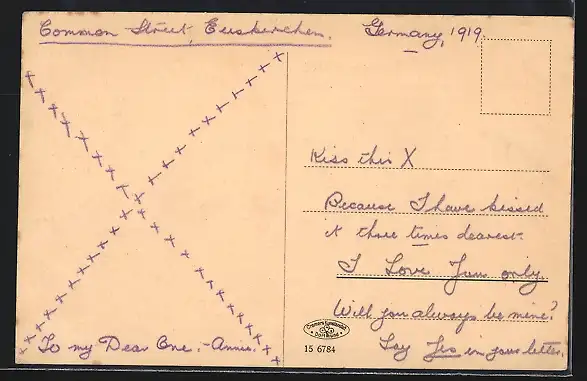 Common Street, Euskirchen.
Germany, 1919.
To my Dear One. - Annie.
Kiss this X
Because I have kissed
it three times dearest.
I Love You only.
Will you always be mine?
Say Yes in your letter.
15 6784